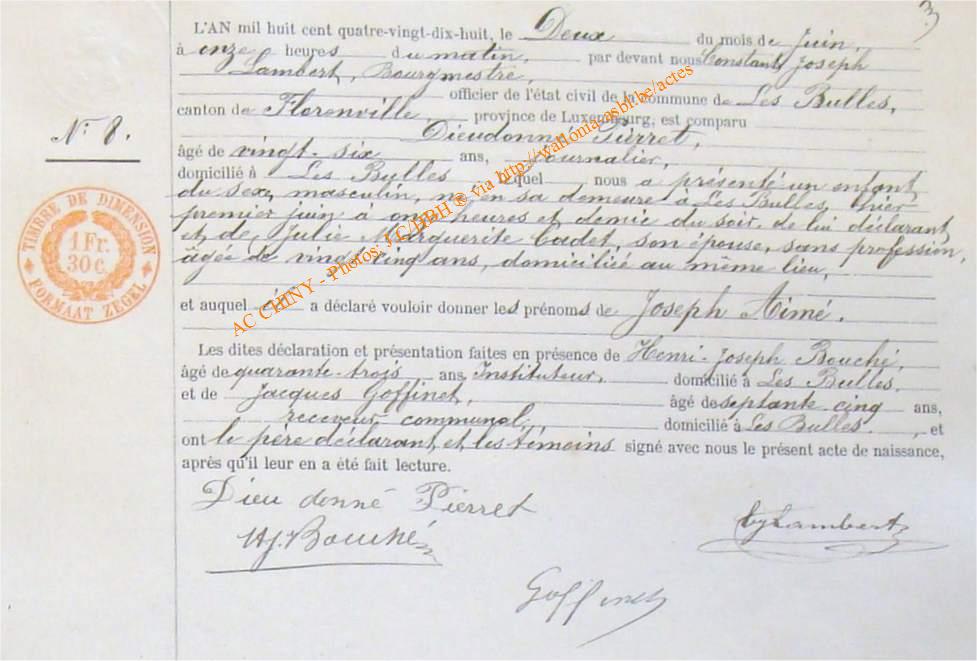 3
L'AN mil huit cent quatre-vingt-dix-huit, le Deux du mois de Juin,
à onze heures du matin, par devant nous Constant Joseph
Lambert, Bourgmestre,
officier de l'état civil de la commune de Les Bulles,
canton de Florenville, province de Luxembourg, est comparu
Dieudonné Pierret,
N° 8.
âgé de vingt-six ans, Journalier,
domicilié à Les Bulles lequel nous a présenté un enfant
du sexe masculin, né en sa demeure à Les Bulles, hier
premier juin à onze heures et demie du soir, de lui déclarant
et de Julie Marguerite Cadet, son épouse, sans profession,
âgée de vingt cinq ans, domiciliée au même lieu,
TIMBRE DE DIMENSION
1 Fr.
30 C.
FORMAAT ZEGEL
et auquel il a déclaré vouloir donner les prénoms de Joseph Aimé.
Les dites déclaration et présentation faites en présence de Henri-Joseph Bouché,
âgé de quarante-trois ans, Instituteur, domicilié à Les Bulles.
et de Jacques Goffinet, âgé de septante cinq ans,
receveur communal, domicilié à Les Bulles, et
ont le père déclarant et les témoins signé avec nous le présent acte de naissance,
après qu'il leur en a été fait lecture.
Dieu donné Piérret
HJ. Bouché
Lambert
Goffinet
AC CHINY - Photos: J.C/HBH © via http://wallonia-asbl.be/actes